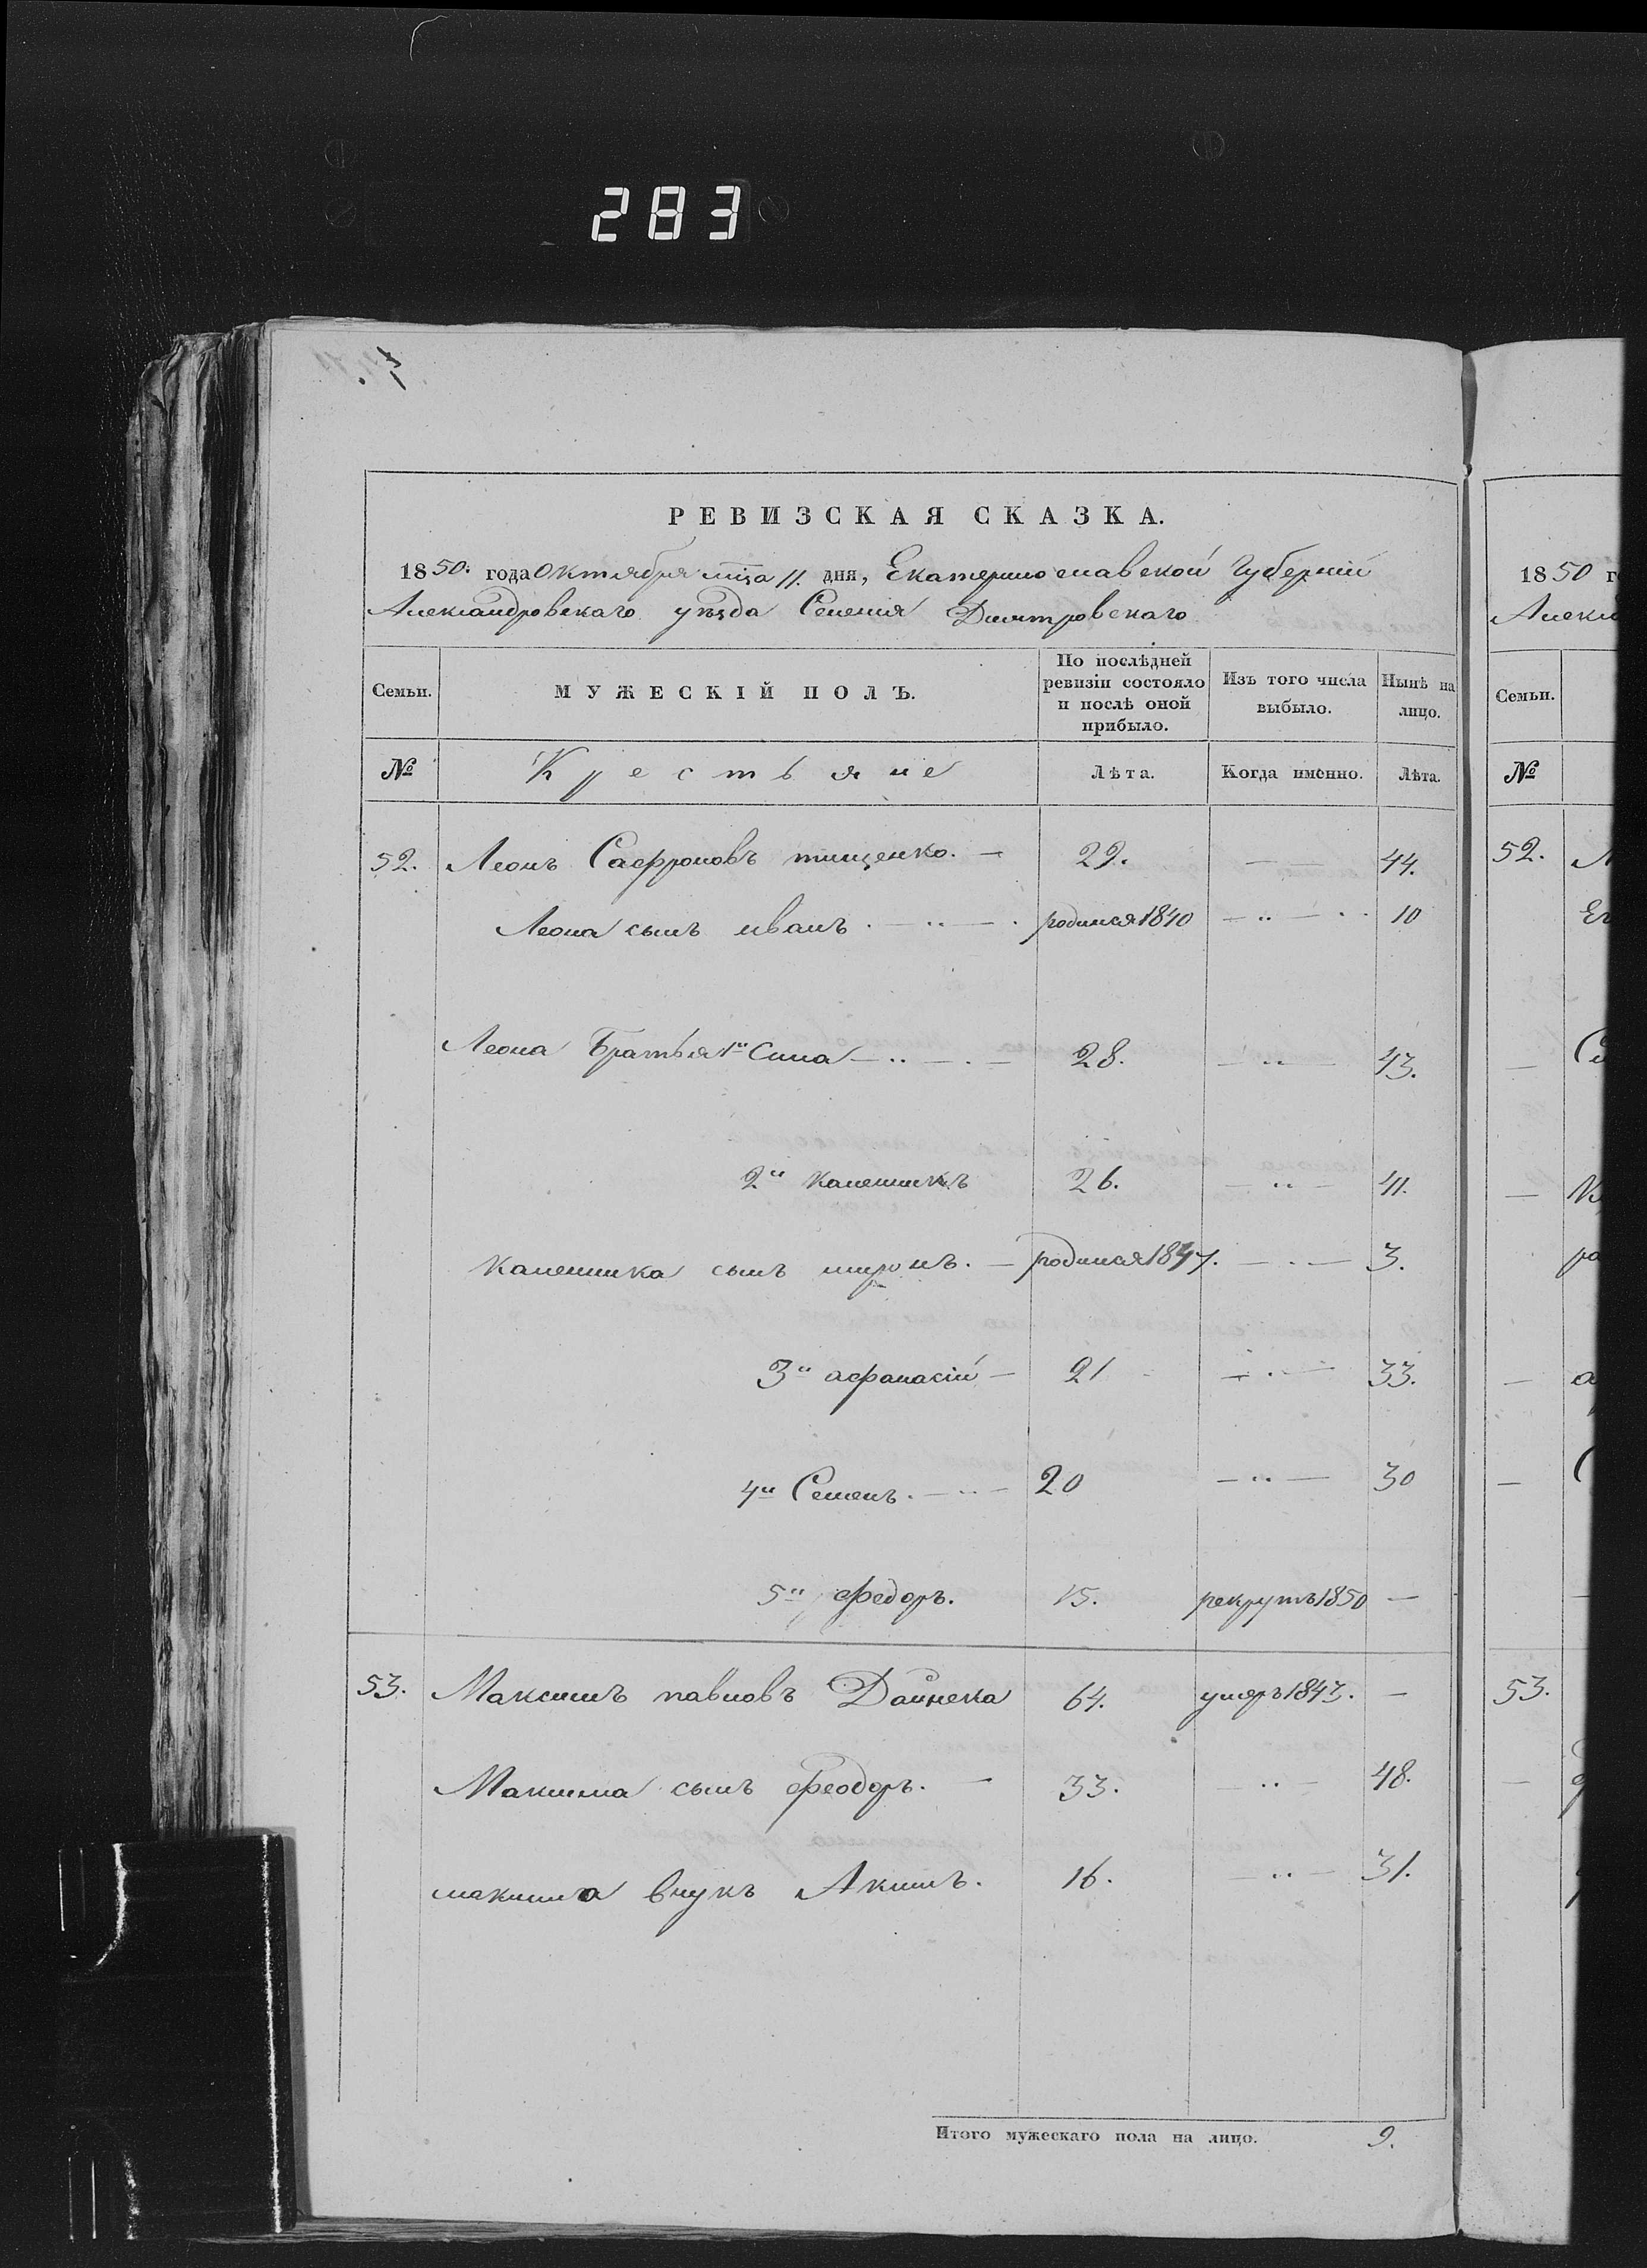 283
РЕВИЗСКАЯ СКАЗКА.
1850. года Октября мѣца 11. дня, Екатеринославской Губерніи
Александровскаго уѣзда Селенія Димитровскаго
Семьи. МУЖЕСКІЙ ПОЛЪ. По послѣдней ревизіи состояло и послѣ оной прибыло. Изъ того числа выбыло. Нынѣ на лицо.
№ Крестьяне Лѣта. Когда именно. Лѣта.
52. Леонъ Сафроновъ тищенко. — 29. — 44.
Леона сынъ иванъ . — .. — . родился 1840 — .. — . . 10
Леона Братья 1й Сила — .. — . — 28. — .. — 43.
2й каленикъ 26. — .. — 41.
каленика сынъ миронъ. — родился 1847. — . — 3.
3й афанасій — 21 — . — 33.
4й Семенъ. — .. — 20 — .. — 30
5й федоръ. 15. рекрутъ 1850 —
53. Максимъ павловъ Дайнека 64. умеръ 1843. —
Макима сынъ феодоръ. — 33. — .. — 48.
макима внукъ Акимъ. 16. — .. — 31.
Итого мужескаго пола на лицо. 9.
1850 г
Алекс
Семьи.
№
52. Л
Ег
Си
— К
ра
— а
— С
—
53.
—